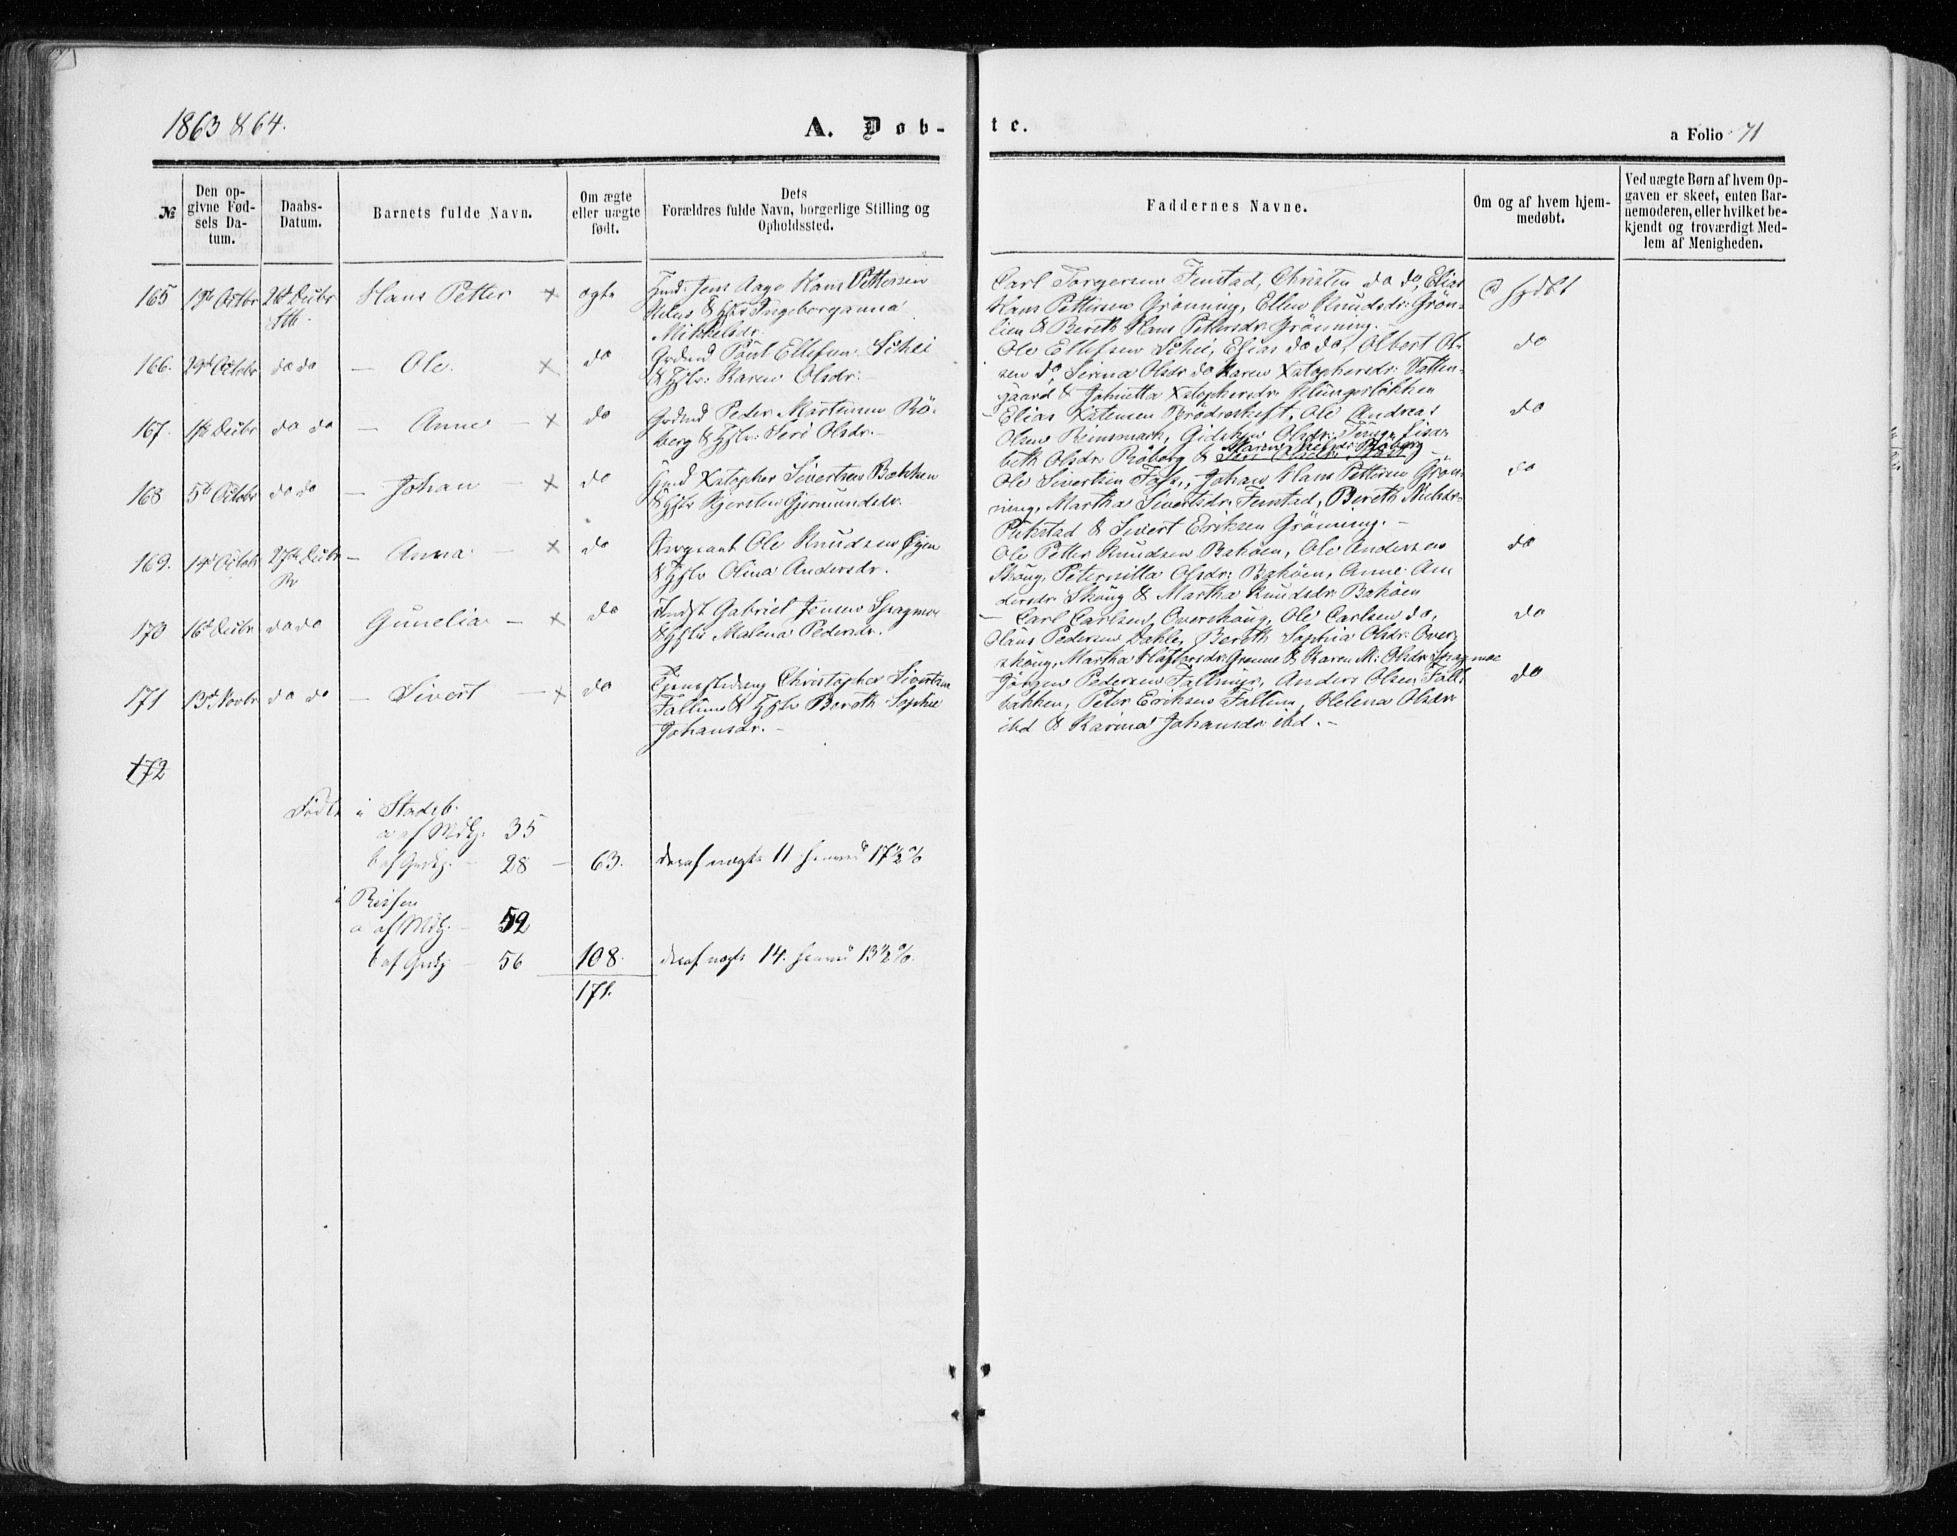 1863 & 64.
A. Døb-
te.
a Folio 71
№
Den op-
givne Fød-
sels Da-
tum.
Daabs-
Datum.
Barnets fulde Navn.
Om ægte
eller uægte
født.
Dets
Forældres fulde Navn, borgerlige Stilling og
Opholdssted.
Faddernes Navne.
Om og af hvem hjem-
medøbt.
Ved uægte Børn af hvem Op-
gaven er skeet, enten Bar-
nemoderen, eller hvilket be-
kjendt og troværdigt Med-
lem af Menigheden.
165 Hans Petter × ægte
Jens Aage Hans Pettersen
& Hstr Ingeborganna
Mikkelsdr.
Carl Torgersen Fenstad, Christen do do, Elias
Hans Pettersen Grønning, Ellen Knudsdr: Grøn-
lien & Bereth Hans Pettersdr: Grønning. -
166. 29d Octobr do do - Ole. × do
Poul Ellefsen Schei
& Hstr: Karen Olsdr: -
Ole Ellefsen Schei, Elias do do, Olbert Ol-
sen do, Serina Olsdr do Karen Xstophersdr: Vatten-
gaard & Johnetta Xstophersdr: Klungerløkken
do
167. 1ste Decbr do do - Anne - × do
Gbrdmd Peder Martinsen Rø-
berg & Hstr: Seri Olsdr. -
- Elias Brødreskift, Ole Andreas
Olsen Reinsmark, Gidsken Olsdr: Lisa-
beth Olsdr: Røberg & Maren Røberg
do
168 5d Octobr do do - Johan - × do
Xstopher Sivertsen Bakken
& Hstr Kjersten Gjermundsdr.
Ole Sivertsen Johan Hans Pettersen Grøn-
ning, Martha Sivertsdr: Fenstad, Bereth
& Sivert Eriksen Grønning. -
do
169. 14d Octobr 27de Decbr - Anna - × do
Sergeant Ole Knudsen Øyen
& Hstr Olina Andersdr.
Ole Petter Knudsen Bahøen, Ole Andersen
Skoug, Peternilla Olsdr: Bahøen, Anne An-
dersdr: Skoug & Martha Knudsdr: Bahøen
do
170 16d Decbr do do Gunelia - × do
Indst Gabriel Jensen Spagmo
& Hstr Malena Pedersdr.
- Carl Carlsen Overskoug, Ole Carlsen do,
Claus Pedersen Dahle, Bereth Sophia Olsdr: Over-
skoug, Martha Grønne & Karen M: Olsdr: Spagmoe
do
171 13d Novbr do do - Sivert - × do
Tjenestedreng Christopher Sivertsen
Fallin & Hstr Bereth Sophie
Johansdr. -
Jørgen Pedersen Fallmyr, Anders Olsen Fall-
bakken, Peter Eriksen Fallin, Helena Olsdr
ibd & Karina Johansdr: ibd. -
do
172
Fødte i Stadsb.
a af Mdkj. 35
b af Qvdkj. - 28 - 63. deraf uægte 11 henved 17½ %
i Rissen
a af Mdkj. - 52
b af Qvdkj - 56 108. deraf uægte 14. henved 13½ %.
171.